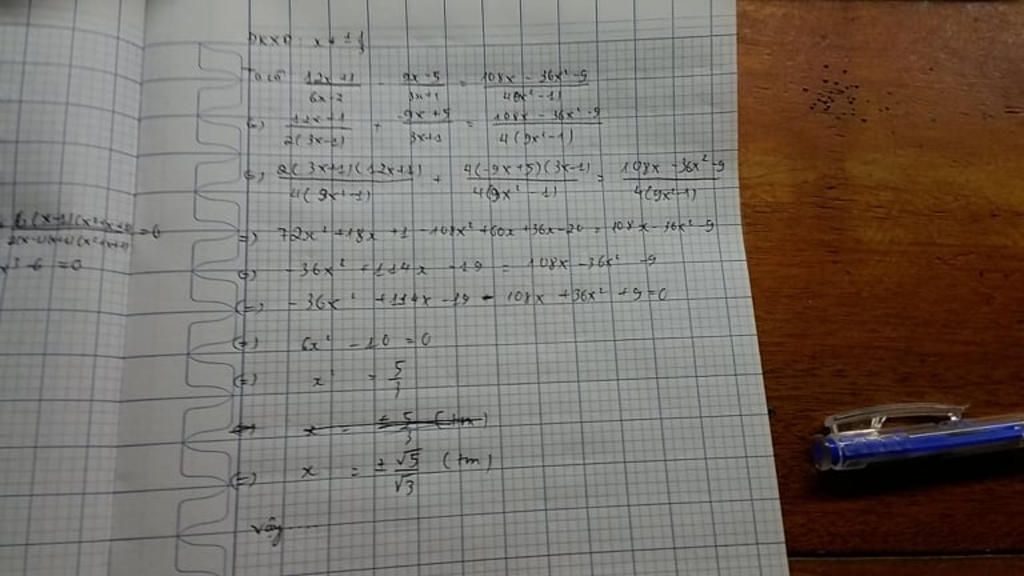 ĐKXĐ: x ≠ ± 1/3
Ta có 12x+1 / 6x-2 - 9x-5 / 3x+1 = 108x - 36x² - 9 / 4(9x²-1)
(=) 12x+1 / 2(3x-1) + -9x+5 / 3x+1 = 108x - 36x² - 9 / 4(9x²-1)
(=) 2(3x+1)(12x+1) / 4(9x²-1) + 4(-9x+5)(3x-1) / 4(9x²-1) = 108x - 36x² - 9 / 4(9x²-1)
=) 72x² + 18x + 1 - 108x² + 60x + 36x - 20 = 108x - 36x² - 9
(=) -36x² + 114x - 19 = 108x - 36x² - 9
(=) -36x² + 114x - 19 - 108x + 36x² + 9 = 0
(=) 6x² - 10 = 0
(=) x² = 5/3
x = ± 5/3 (tm)
(=) x = ±√5 / √3 (tm)
Vậy
6(x-1)(x²+x+1) / = 0
x3 - 6 = 0